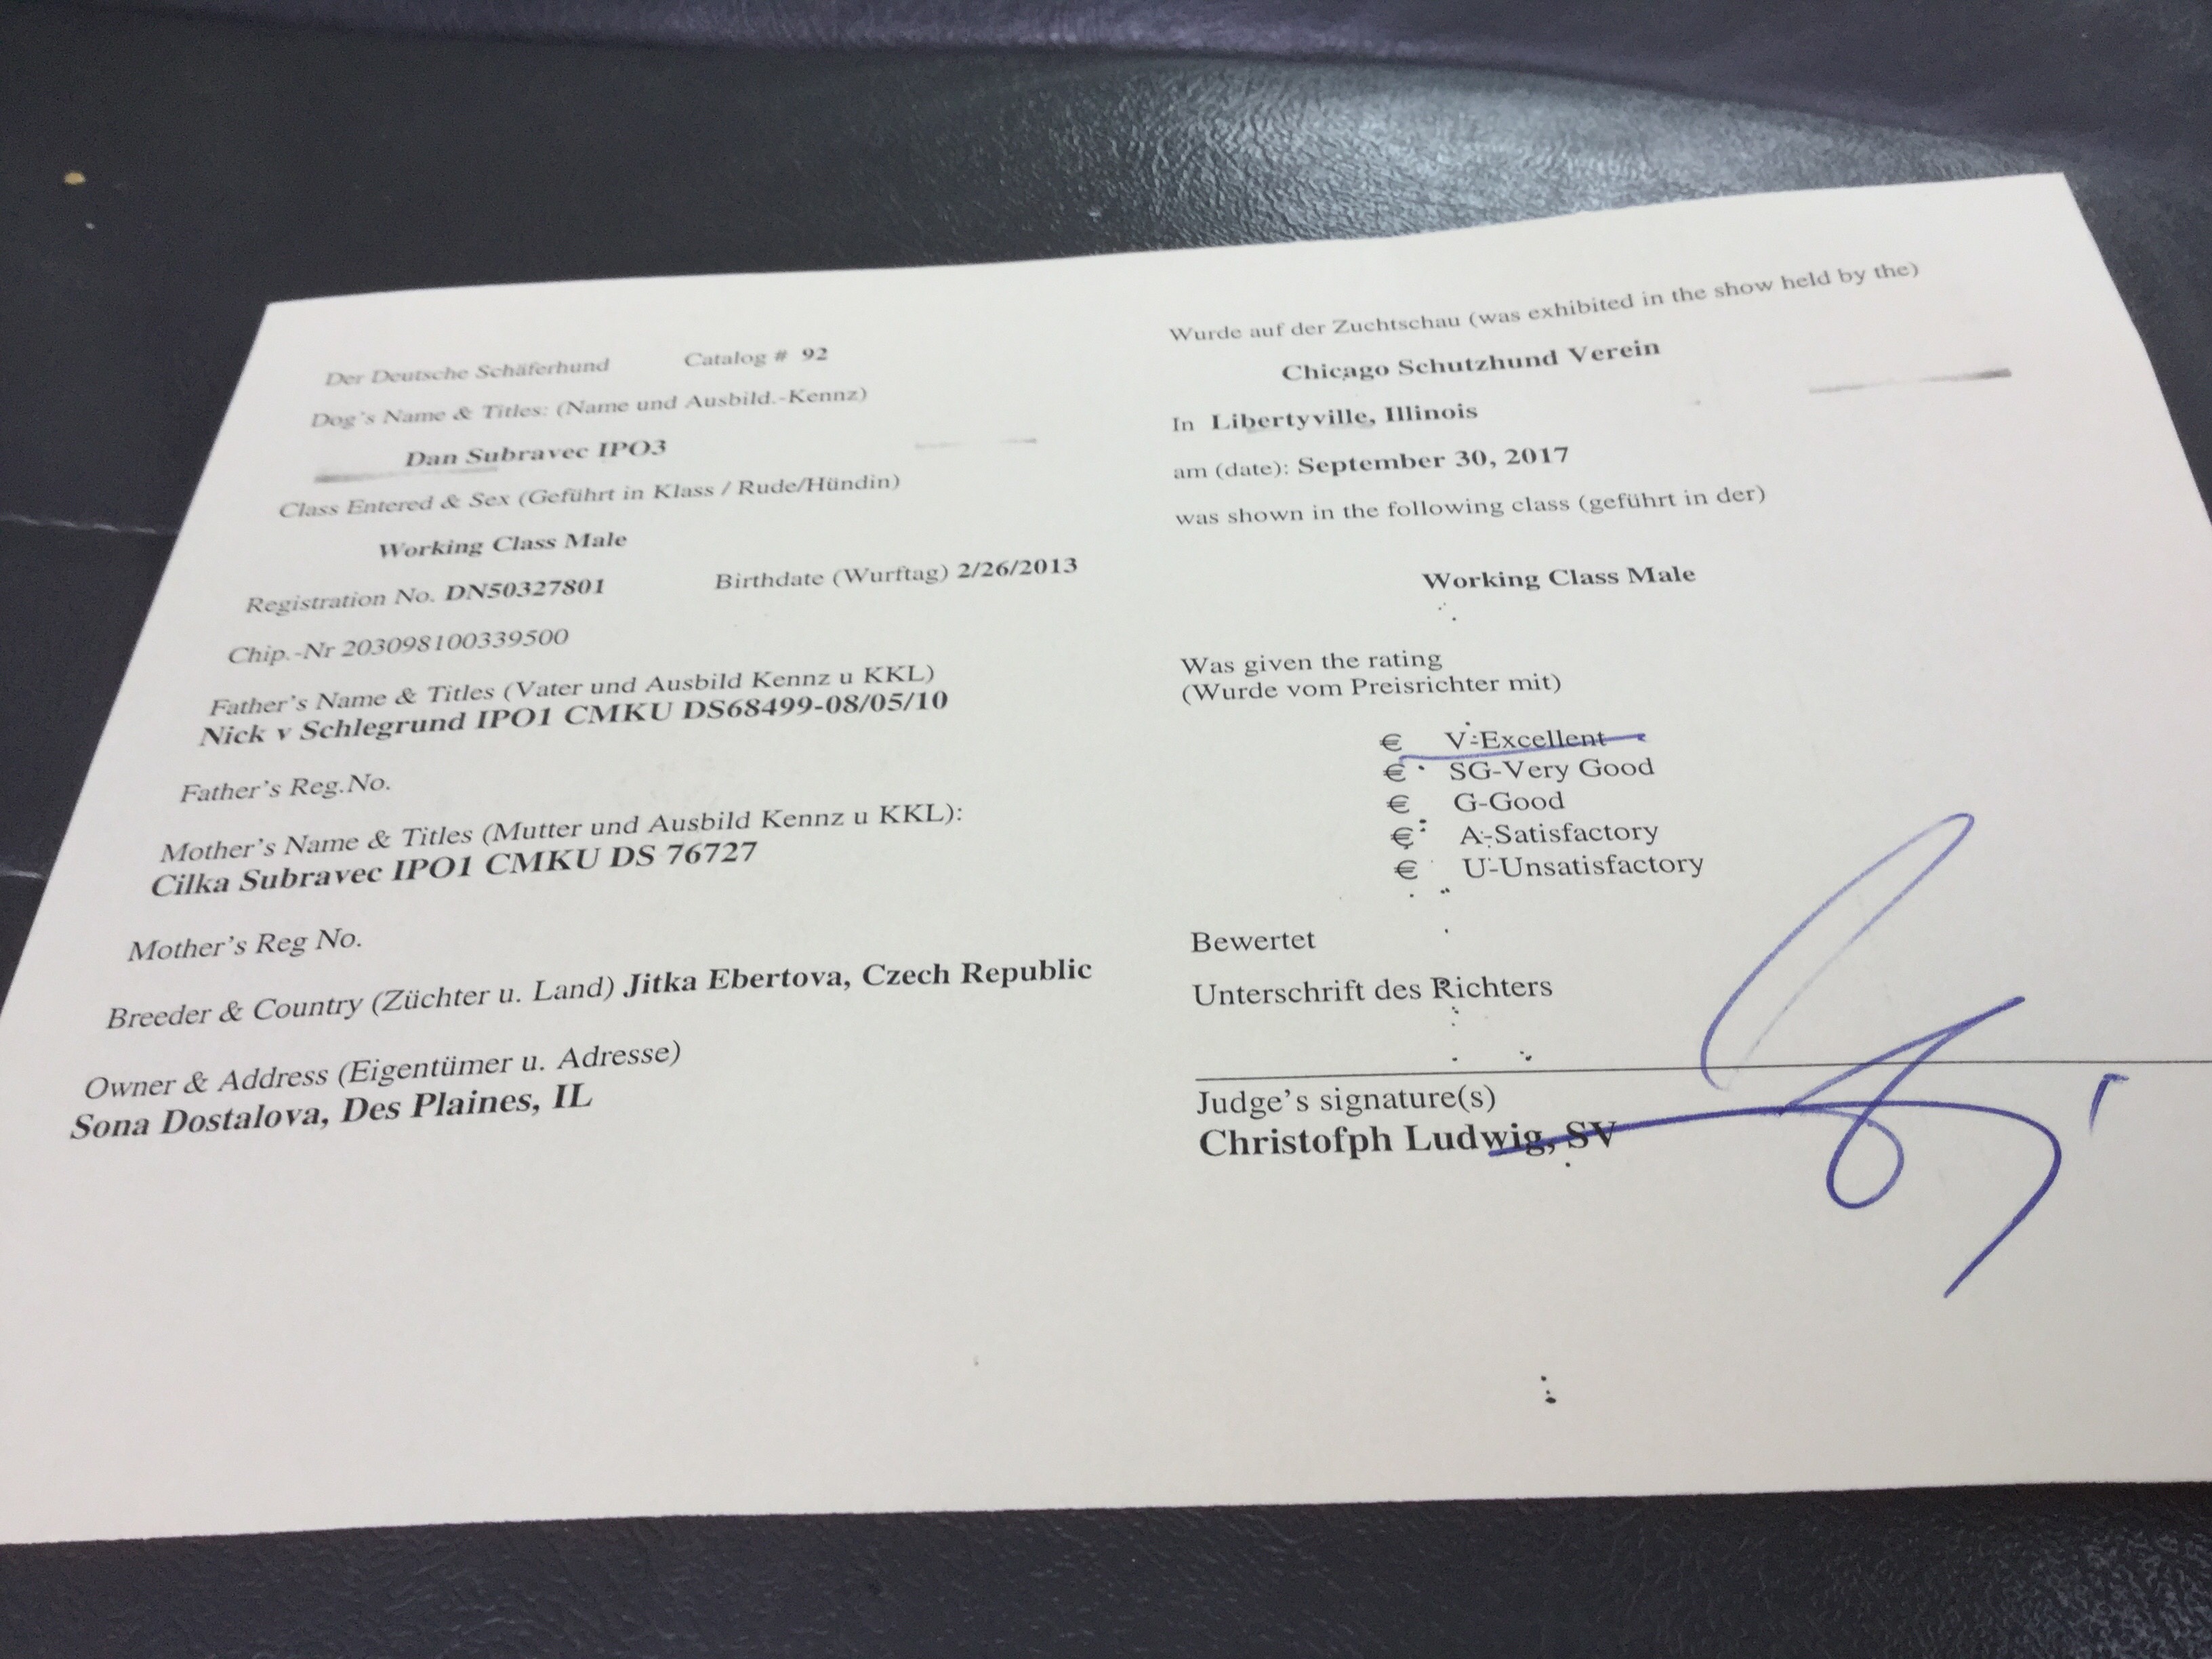 Der Deutsche Schäferhund Catalog # 92
Dog's Name & Titles: (Name und Ausbild.-Kennz)
Dan Subravec IPO3
Class Entered & Sex (Geführt in Klass / Rude/Hündin)
Working Class Male
Registration No. DN50327801 Birthdate (Wurftag) 2/26/2013
Chip.-Nr 203098100339500
Father's Name & Titles (Vater und Ausbild Kennz u KKL)
Nick v Schlegrund IPO1 CMKU DS68499-08/05/10
Father's Reg.No.
Mother's Name & Titles (Mutter und Ausbild Kennz u KKL):
Cilka Subravec IPO1 CMKU DS 76727
Mother's Reg No.
Breeder & Country (Züchter u. Land) Jitka Ebertova, Czech Republic
Owner & Address (Eigentümer u. Adresse)
Sona Dostalova, Des Plaines, IL
Wurde auf der Zuchtschau (was exhibited in the show held by the)
Chicago Schutzhund Verein
In Libertyville, Illinois
am (date): September 30, 2017
was shown in the following class (geführt in der)
Working Class Male
Was given the rating
(Wurde vom Preisrichter mit)
€ V-Excellent
€ SG-Very Good
€ G-Good
€ A-Satisfactory
€ U-Unsatisfactory
Bewertet
Unterschrift des Richters
Judge's signature(s)
Christofph Ludwig, SV